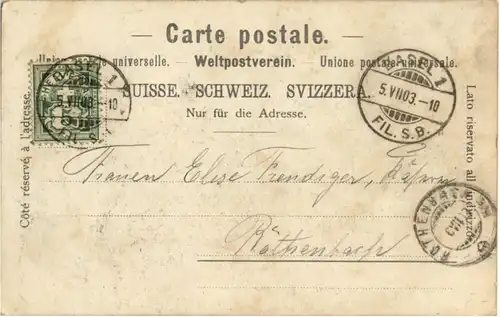 Carte postale.
Union postale universelle. Weltpostverein. Unione postale universale.
SUISSE. SCHWEIZ. SVIZZERA.
Nur für die Adresse.
Côté réservé à l'adresse.
Lato riservato all'indirizzo.
BASEL 1
5.VII03.-10
BASEL 1
5.VII03.-10
FIL.S.B.
Frauen Elise
Röthenbach
RÖTHENBACH